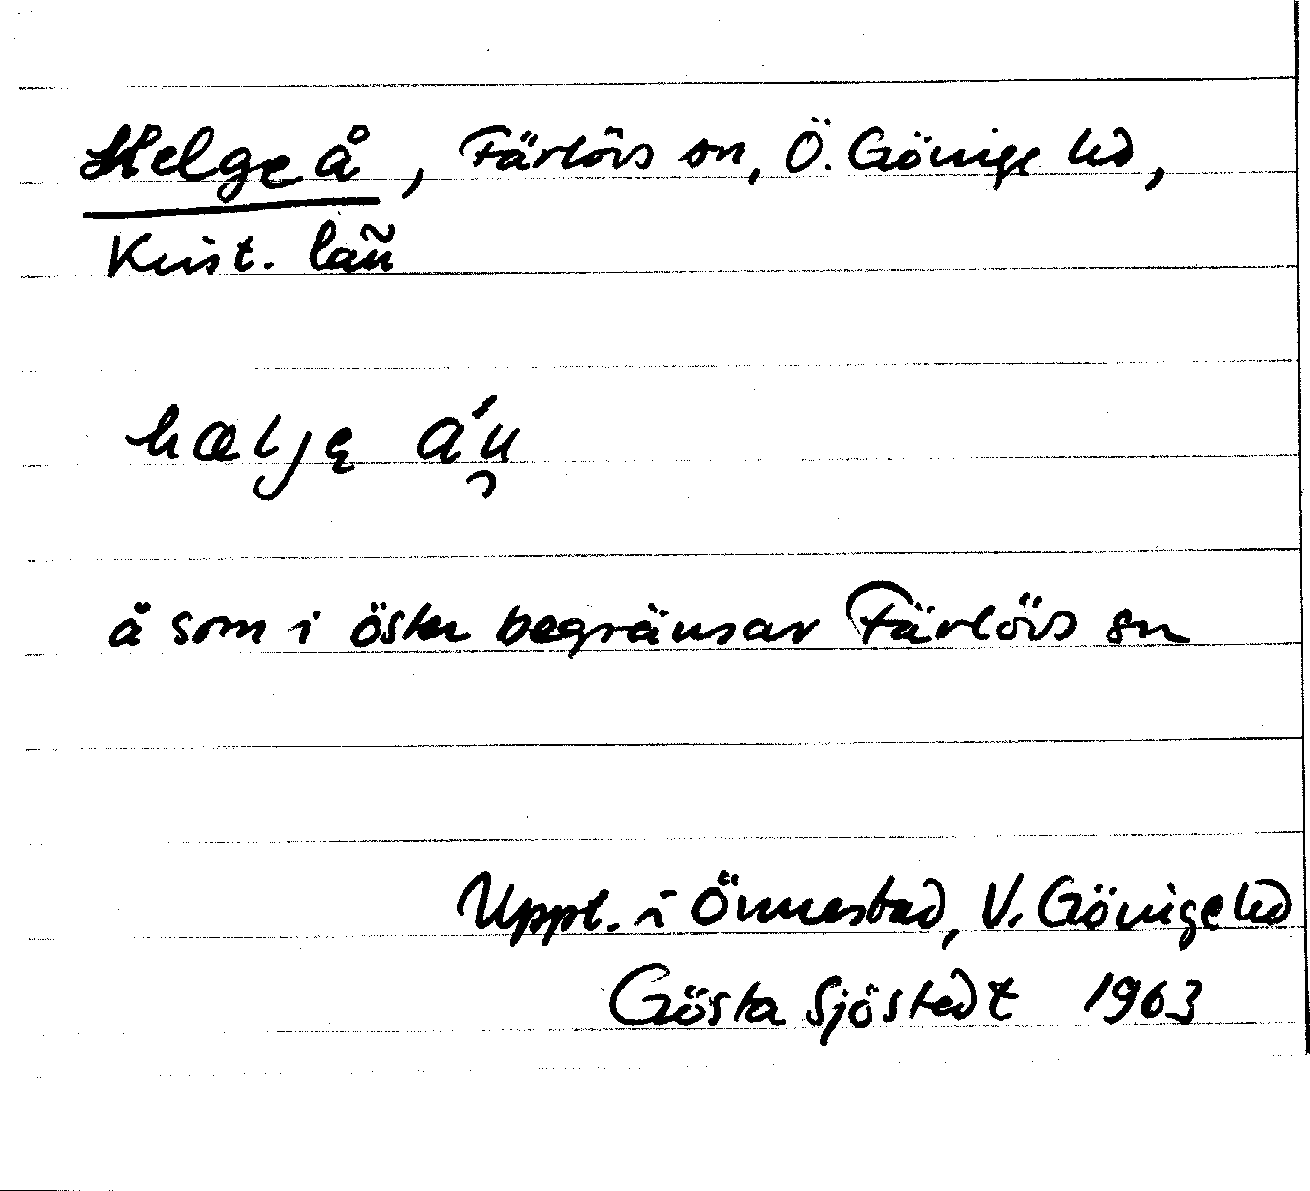 Helgeå, Färlövs sn, Ö. Göinge hd,
Krist. län
hælję áu̯
å som i öster begränsar Färlövs sn
Uppt. i Önnestad, V. Göinge hd
Gösta Sjöstedt 1963